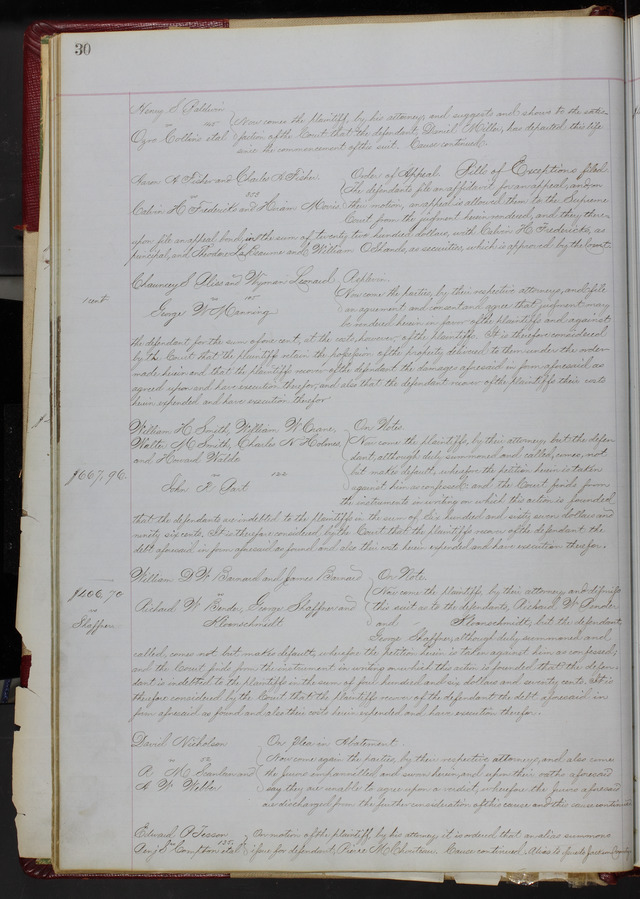 30
Henry S. Baldwin
vs Now comes the plaintiff, by his attorney, and suggests and shows to the satis-
Cyro Collins et al faction of the Court that the defendant, Daniel Miller, has departed this life
since the commencement of this suit. Cause continued.
Aaron A Fisher and Charles A Fisher. Order of Appeal. Bill of Exceptions filed
vs The defendants file an affidavit for an appeal, and on
Calvin H. Fredericks and Hiram Morris their motion, an appeal is allowed them to the Supreme
Court from the judgment herein rendered, and they there-
upon file an appeal bond, in the sum of twenty two hundred dollars, with Calvin H. Fredericks, as
principal, and Theodore and William as securities, which is approved by the Court
Chauncey S Bliss and Wyman Leonard Replevin
vs Now come the parties, by their respective attorneys, and file
1 cent George W Manning an agreement and consent and agree that judgment may
be rendered herein in favor of the plaintiffs and against
the defendant for the sum of one cent, at the costs, however, of the plaintiffs. It is therefore considered
by the Court that the plaintiffs retain the possession of the property delivered to them under the order
made herein and that the plaintiffs recover of the defendant the damages aforesaid in form aforesaid, as
agreed upon and have execution therefor, and also that the defendant recover of the plaintiffs their costs
herein expended and have execution therefor
William H. Smith, William W Crane, On Notes.
Walter M Smith, Charles N Holmes, Now come the plaintiffs, by their attorney, but the defen-
and Howard Waldo dant, although duly summoned and called, comes not
but makes default, wherefore the petition herein is taken
$667.96. John F. vs against him as confessed: and the Court finds from
the instruments in writing on which the action is founded
that the defendants are indebted to the plaintiffs in the sum of Six hundred and sixty seven dollars and
ninety six cents. It is therefore considered by the Court that the plaintiffs recover of the defendant the
debt aforesaid in form aforesaid as found and also their costs herein expended and have execution therefor.
William D W Barnard and James Barnard On Note.
vs Now come the plaintiffs, by their attorney and dismiss
$406.70 Richard W Bender, George Shaffner and this suit as to the defendants, Richard W Bender
vs Shaffner Kleinschmidt and Kleinschmidt, but the defendant,
George Shaffner, although duly summoned and
called, comes not but makes default, wherefore the petition herein is taken against him as confessed;
and the Court finds from the instrument in writing on which the action is founded that the defen-
dant is indebted to the plaintiffs in the sum of four hundred and six dollars and seventy cents. It is
therefore considered by the Court that the plaintiffs recover of the defendant the debt aforesaid in
form aforesaid as found and also their costs herein expended and have execution therefor.
David Nicholson On Plea in Abatement.
vs Now come again the parties, by their respective attorneys, and also come
A M Scanlan and the Jurors empannelled and sworn herein, and upon their oaths aforesaid
A W Webb say they are unable to agree upon a verdict, wherefore the Jurors aforesaid
are discharged from the further consideration of this cause and this cause continued
Edward P Tesson On motion of the plaintiff, by his attorney it is ordered that an alias summons
Benj S Compton et al issue for defendant, Pierre M Chouteau. Cause continued. Alias to